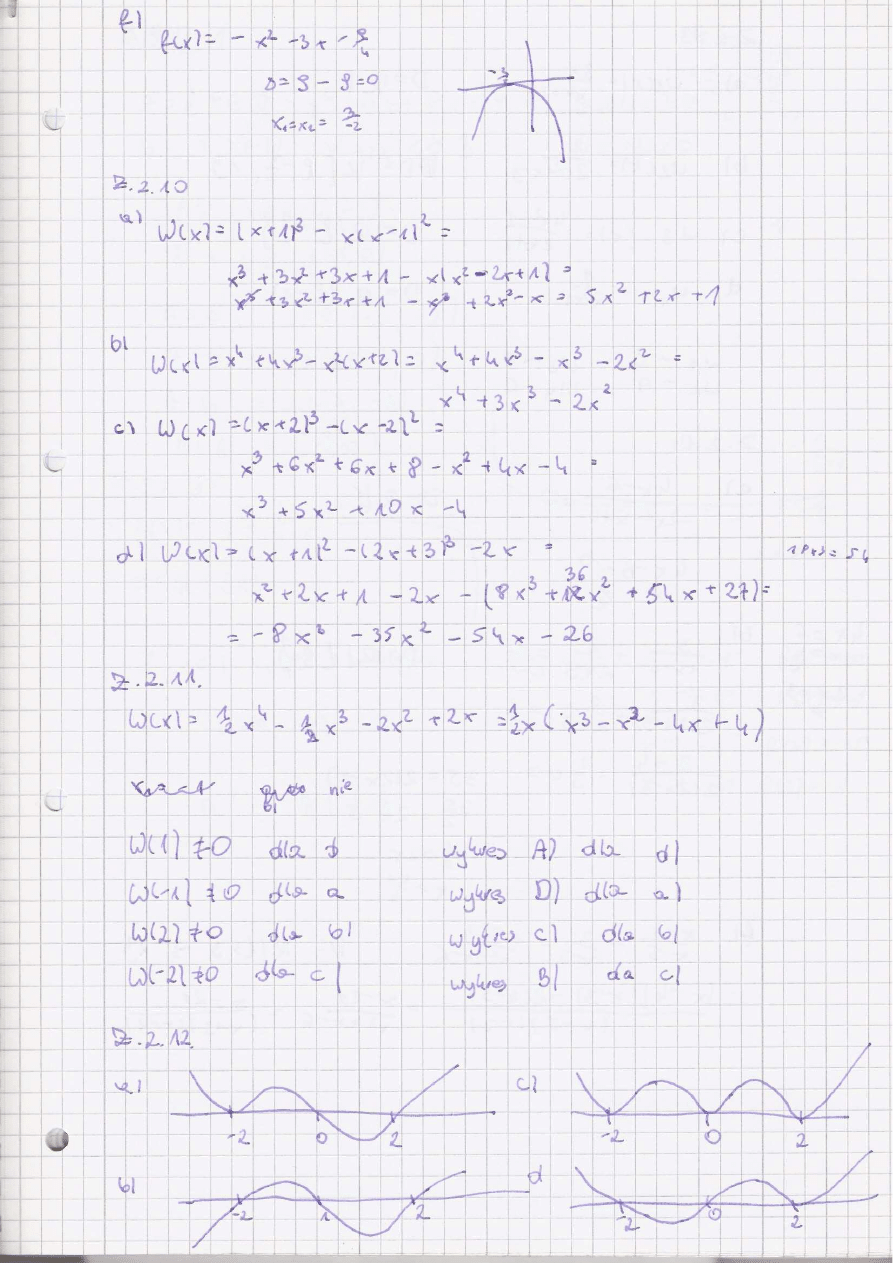 f)
f(x) = - x² - 3x - 9/4
Δ = 9 - 9 = 0
x₁ = x₂ = 3/-2
-3/2
Z.2.10
a) W(x) = (x+1)³ - x(x-1)² =
x³ + 3x² + 3x + 1 - x(x² - 2x + 1) =
x³ + 3x² + 3x + 1 - x³ + 2x² - x = 5x² + 2x + 1
b)
W(x) = x⁴ + 4x³ - x²(x+2) = x⁴ + 4x³ - x³ - 2x² =
x⁴ + 3x³ - 2x²
c) W(x) = (x+2)³ - (x-2)² =
x³ + 6x² + 6x + 8 - x² + 4x - 4 =
x³ + 5x² + 10x - 4
d) W(x) = (x+1)² - (2x+3)³ - 2x =
= 54
x² + 2x + 1 - 2x - (8x³ + 36x² + 54x + 27) =
= -8x³ - 35x² - 54x - 26
Z.2.11.
W(x) = 1/2 x⁴ - 1/2 x³ - 2x² + 2x = 1/2 x (x³ - x² - 4x + 4)
nie
W(1) ≠ 0 dla d
W(-1) ≠ 0 dla a
W(2) ≠ 0 dla b)
W(-2) ≠ 0 dla c)
wykres A) dla d)
wykres D) dla a)
wykres C) dla b)
wykres B) da c)
Z.2.12.
a)
-2 0 2
c)
-2 0 2
b)
-2 1 2
d
-2 0 2